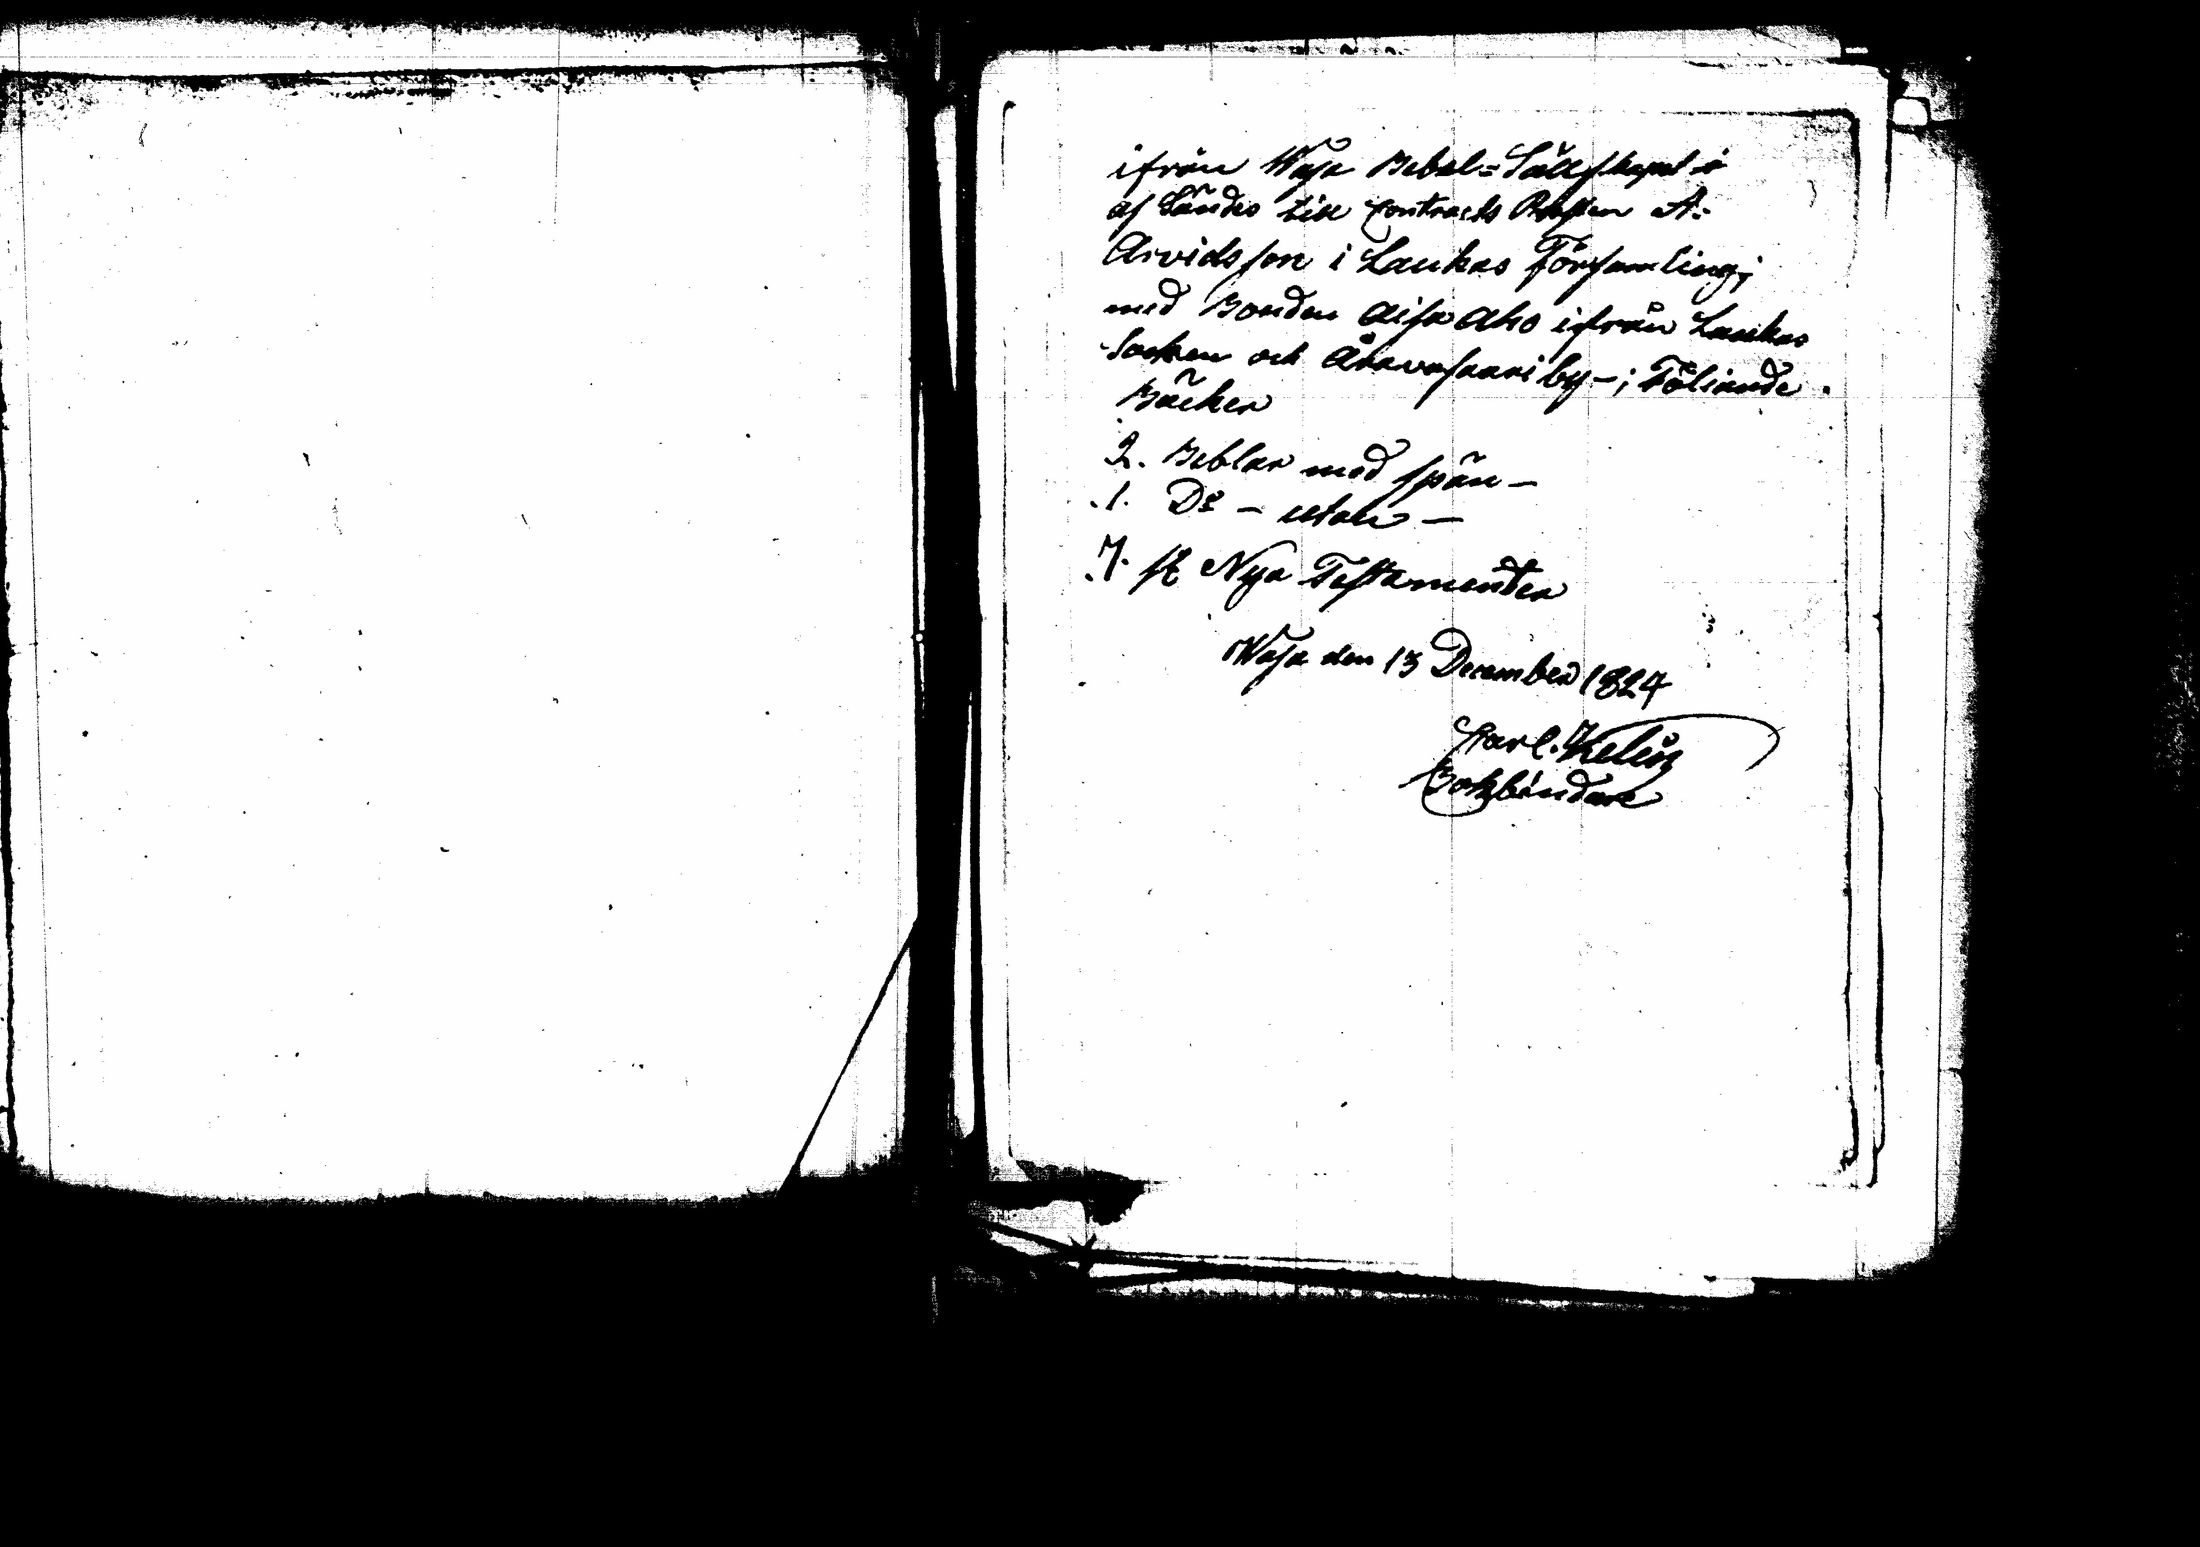 ifrån Wasa Bebel=Sällskapet är
af Sändes till Contracts Prosten A:
Arvidsson i Laukas Församling;
med Bonden Aisa Aho ifrån Laukas
Socken och Äravasaari by - ; Föliande
Böcker
2. Beblar med spän -
1. Do - utan -
7. st Nya Testamenter
Wasa den 13 December 1824
Carl
Bokbindare